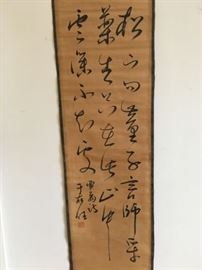 松下問童子言師采
藥去只在此山中
雲深不知處
于右任